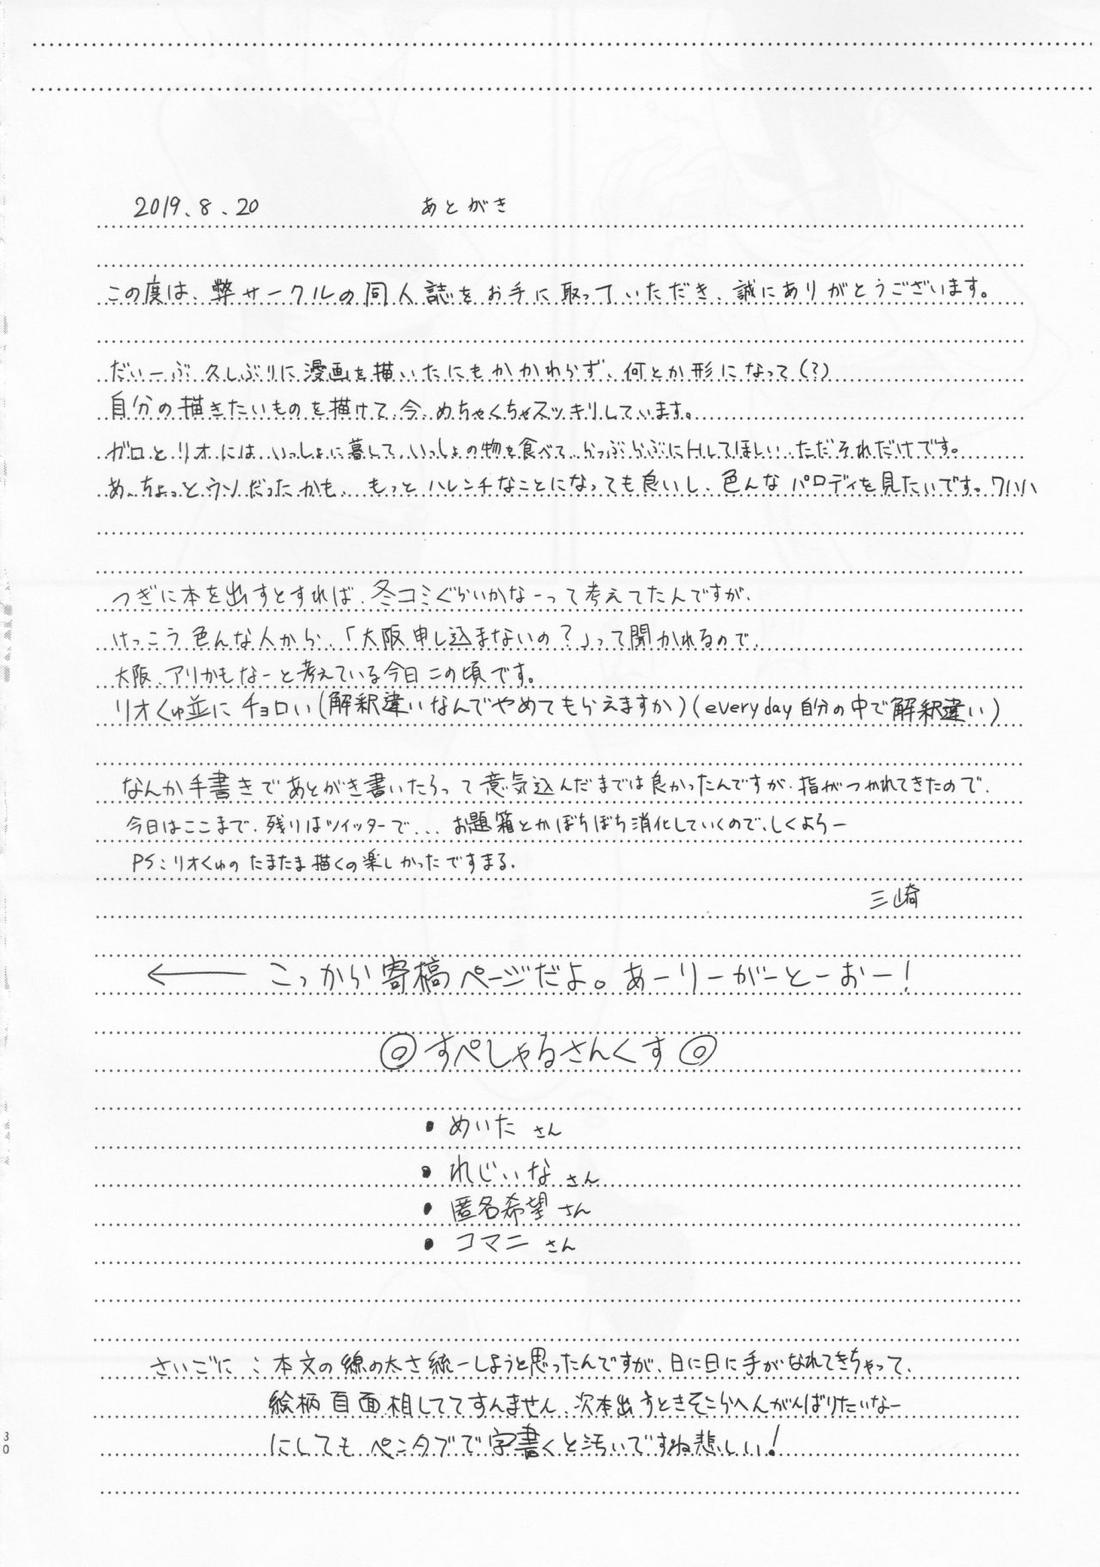 2019.8.20 あとがき
この度は、弊サークルの同人誌をお手に取っていただき、誠にありがとうございます。
だいーぶ久しぶりに漫画を描いたにもかかわらず、何とか形になって(?)
自分の描きたいものを描けて、今、めちゃくちゃスッキリしています。
ガロとリオには、いっしょに暮して、いっしょの物を食べて、らっぶらぶにHしてほしい…ただそれだけです。
あ、ちょっとウソだったかも… もっとハレンチなことになっても良いし、色んなパロディを見たいです。ワハハ
つぎに本を出すとすれば、冬コミぐらいかなーって考えてたんですが、
けっこう色んな人から、「大阪申し込まないの?」って聞かれるので、
大阪、アリかもなーと考えている今日この頃です。
リオくゅ並にチョロい(解釈違いなんでやめてもらえますか)(everyday自分の中で解釈違い)
なんか手書きであとがき書いたらって意気込んだまでは良かったんですが、指がつかれてきたので、
今日はここまで、残りはツイッターで… お題箱とかぼちぼち消化していくので、しくよろー
PS:リオくゅのたまたま描くの楽しかったですまる。
三崎
← こっから寄稿ページだよ。あーりーがーとーおー!
◎すぺしゃるさんくす◎
• めいたさん
• れじぃなさん
• 匿名希望さん
• コマニさん
さいごに:本文の線の太さ統一しようと思ったんですが、日に日に手がなれてきちゃって、
絵柄百面相しててすんません、次本出すときそこらへんがんばりたいなー
にしてもペンタブで字書くと汚いですね悲しい!
30